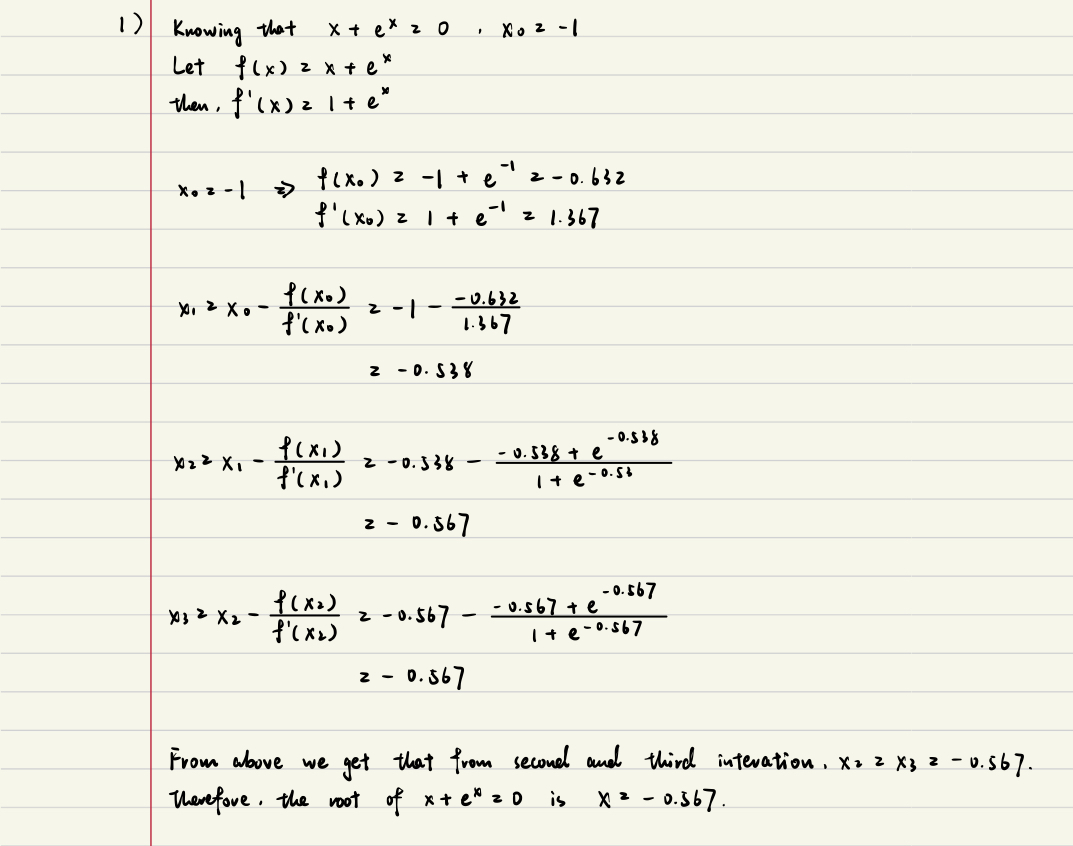 1) Knowing that x + e^x = 0 , x₀ = -1
Let f(x) = x + e^x
then, f'(x) = 1 + e^x
x₀ = -1 ⇒ f(x₀) = -1 + e^-1 = -0.632
f'(x₀) = 1 + e^-1 = 1.367
x₁ = x₀ - f(x₀)/f'(x₀) = -1 - -0.632/1.367
= -0.538
x₂ = x₁ - f(x₁)/f'(x₁) = -0.538 - (-0.538 + e^-0.538)/(1 + e^-0.53)
= -0.567
x₃ = x₂ - f(x₂)/f'(x₂) = -0.567 - (-0.567 + e^-0.567)/(1 + e^-0.567)
= -0.567
From above we get that from second and third interation, x₂ = x₃ = -0.567.
Therefore, the root of x + e^x = 0 is x = -0.567.